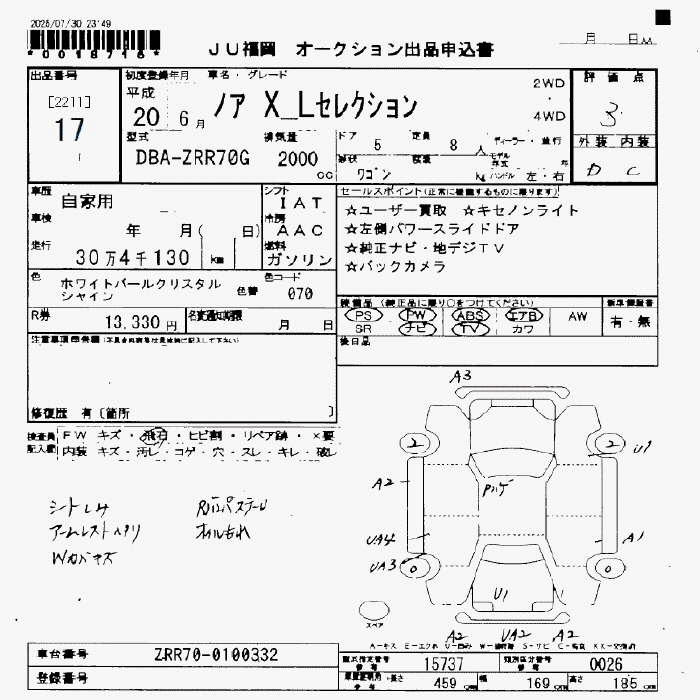 2025/07/30 23:49
*0019716*
JU福岡 オークション出品申込書
月 日
出品番号 初度登録年月 車名・グレード 評価点
[2211] 平成 ノア X_Lセレクション 2WD 3
17 20 6月 4WD
型式 排気量 ドア 5 定員 8人 ディーラー・並行 外装 内装
DBA-ZRR70G 2000cc 形状 ワゴン 積載 kg ハンドル 左・右 D C
車歴 自家用 シフト IAT セールスポイント(正常に機能するものに限ります)
車検 年 月( 日) 冷房 AAC ☆ユーザー買取 ☆キセノンライト
走行 30万4千130km 燃料 ガソリン ☆左側パワースライドドア
☆純正ナビ・地デジTV
☆バックカメラ
色 ホワイトパールクリスタルシャイン 色替 色コード 070
R券 13,330円 名変通知期限 月 日
装備品(純正品に限り○をつけてください)
PS PW ABS エアB AW 有・無
SR ナビ TV カワ
後日品
注意事項
修復歴 有〔箇所 〕
検査員記入欄 FW キズ・飛石・ヒビ割・リペア跡・×要
内装 キズ・汚レ・コゲ・穴・スレ・キレ・破レ
A3
2 2 U1
A2
UA4 A1
UA3 0 0
U1
スペア
A2 UA2 A2
シートしみ
オイルもれ
車台番号 ZRR70-0100332
登録番号
型式指定番号 15737 類別区分番号 0026
長さ 459cm 幅 169cm 高さ 185cm